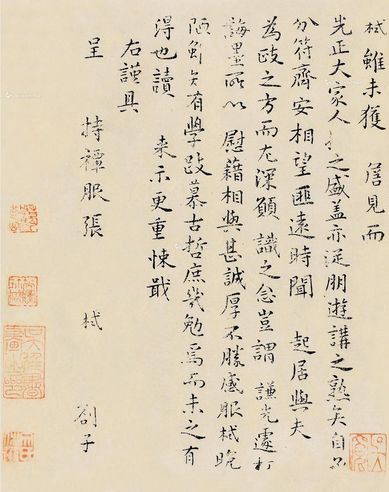 栻雖未獲 詹見而
光正大家人之盛蓋亦從朋遊講之熟矣自
分符齊安相望匪遠時聞 起居與夫
為政之方而左深願識之念豈謂 謙光遽
誨墨所以慰藉相與甚誠厚不勝感服栻晚
陋 矣有學 慕古哲庶幾勉焉而未之有
得也讀 來示更重悚戢
右謹具
呈 持禫服張 栻 劄子